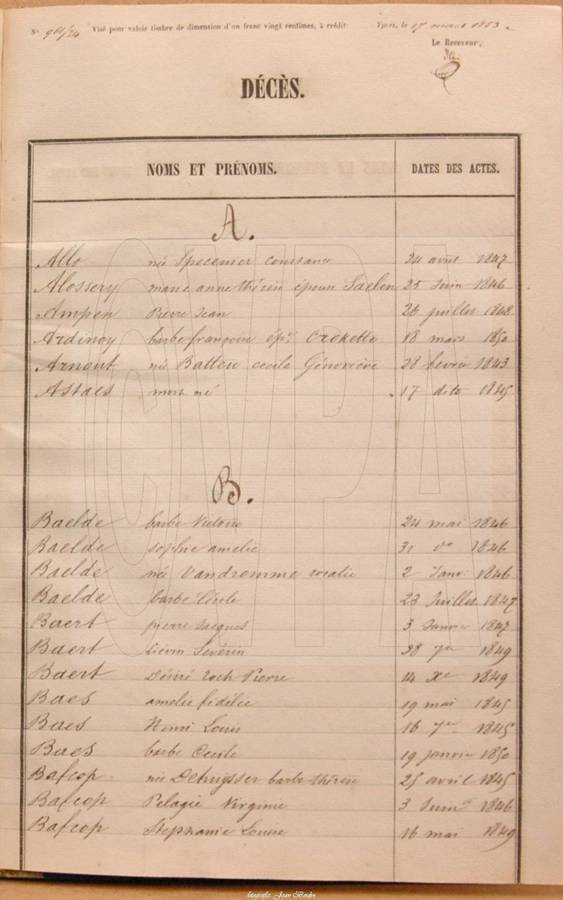 N° 961/24 Visé pour valoir timbre de dimension d'un franc vingt centimes, à crédit Ypres, le 17 mars 1853
Le Receveur,
DÉCÈS.
NOMS ET PRÉNOMS. DATES DES ACTES.
A.
Allo née constance 24 avril 1847
Alossery marie anne thérèse épouse Saelen 25 Juin 1846
Ampen Pierre Jean 26 juillet 1848
Ardinoy barbe françoise ép.se Crokette 18 mars 1850
Arnout née Batteu cecile Géneviève 28 fevrier 1843
Astaes mort né 17 dito 1845
B.
Baelde barbe Victoire 24 mai 1846
Baelde sophie amelie 31 do 1846
Baelde née Vandromme rosalie 2 Janv. 1846
Baelde barbe Cécile 23 Juillet 1847
Baert pierre Jacques 3 Janvier 1847
Baert Séverin 28 7re 1849
Baert Désiré roch Pierre 14 Xe 1849
Baes amelie fidélie 19 mai 1845
Baes Henri Louis 16 7re 1845
Baes barbe Cecile 19 janvier 1850
Bafcop née Dehuysser barbe thérèse 25 avril 1845
Bafcop Pelagie Virginie 3 Juin 1846
Bafcop Stephanie Louise 16 mai 1849
CVPA